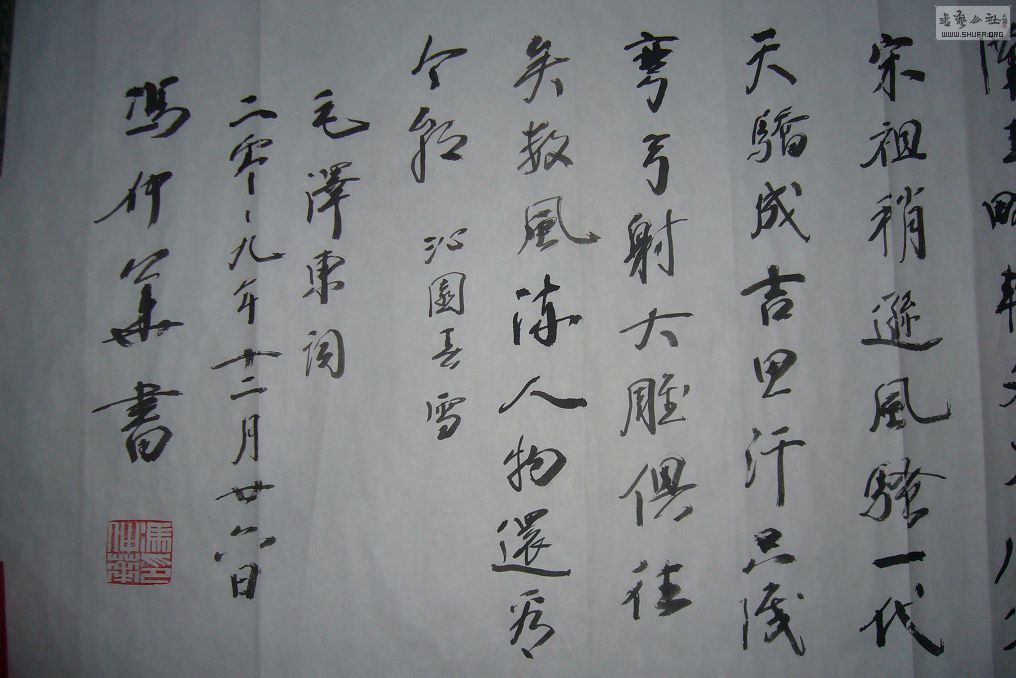 漢武略輸文采唐宗
宋祖稍遜風騷一代
天驕成吉思汗只識
彎弓射大雕俱往
矣數風流人物還看
今朝 沁園春雪
毛澤東詞
二零九年十二月廿六日
馮仲華書
馮印仲華
書藝公社
WWW.SHUFA.ORG